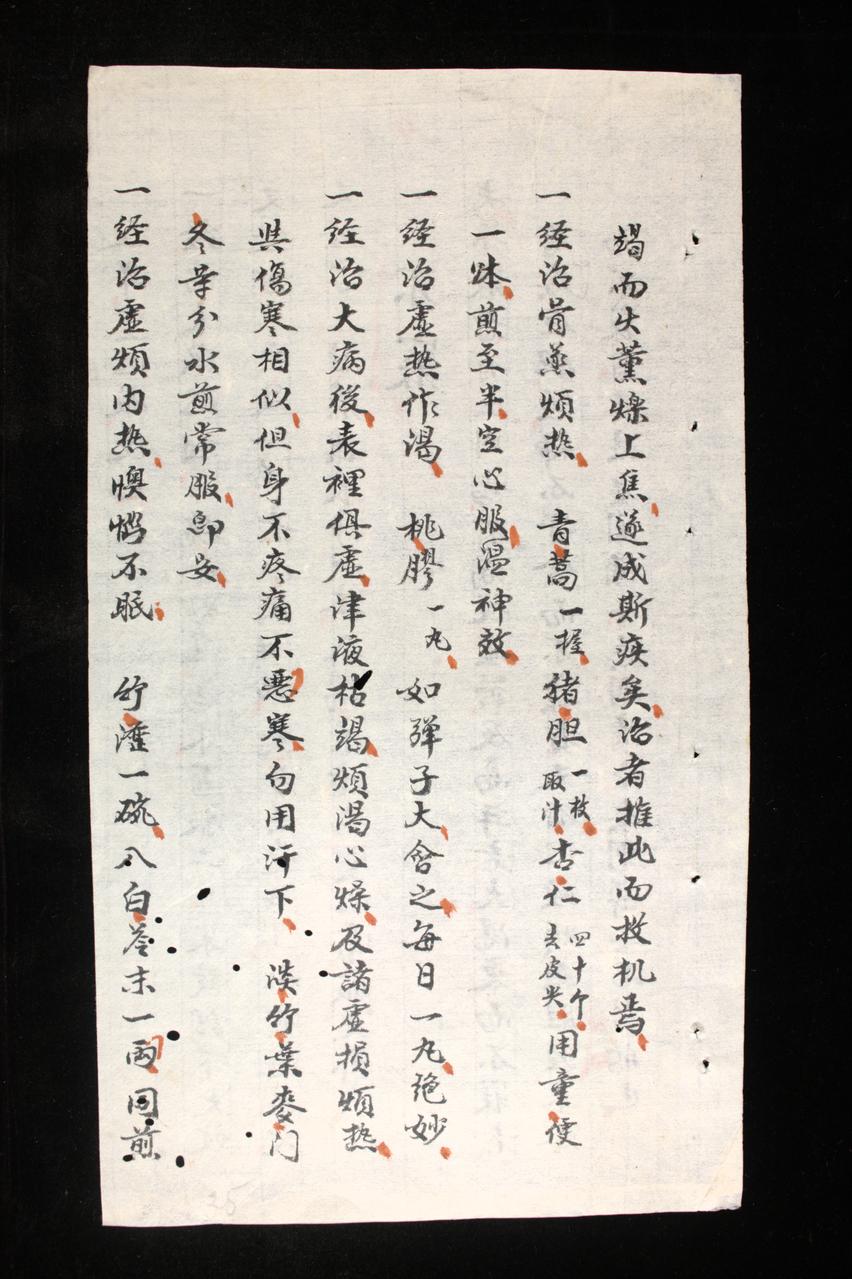 竭而火薰燥上焦遂成斯疾矣治者推此而救机焉
一経治骨蒸煩热 青蒿一握猪胆一枚取汁杏仁四十个去皮尖用童便
一煎至半空心服温神效
一経治虛热作渴 桃膠一丸如彈子大含之每日一丸绝妙
一経治大病後表裡俱虛津液枯竭煩渴心燥及諸虛損煩热
與傷寒相似但身不疼痛不惡寒勿用汗下 淡竹葉麥门
冬等分水煎常服即安
一経治虛煩内热懊憹不眠 竹瀝一碗入白苓末一両同煎
25